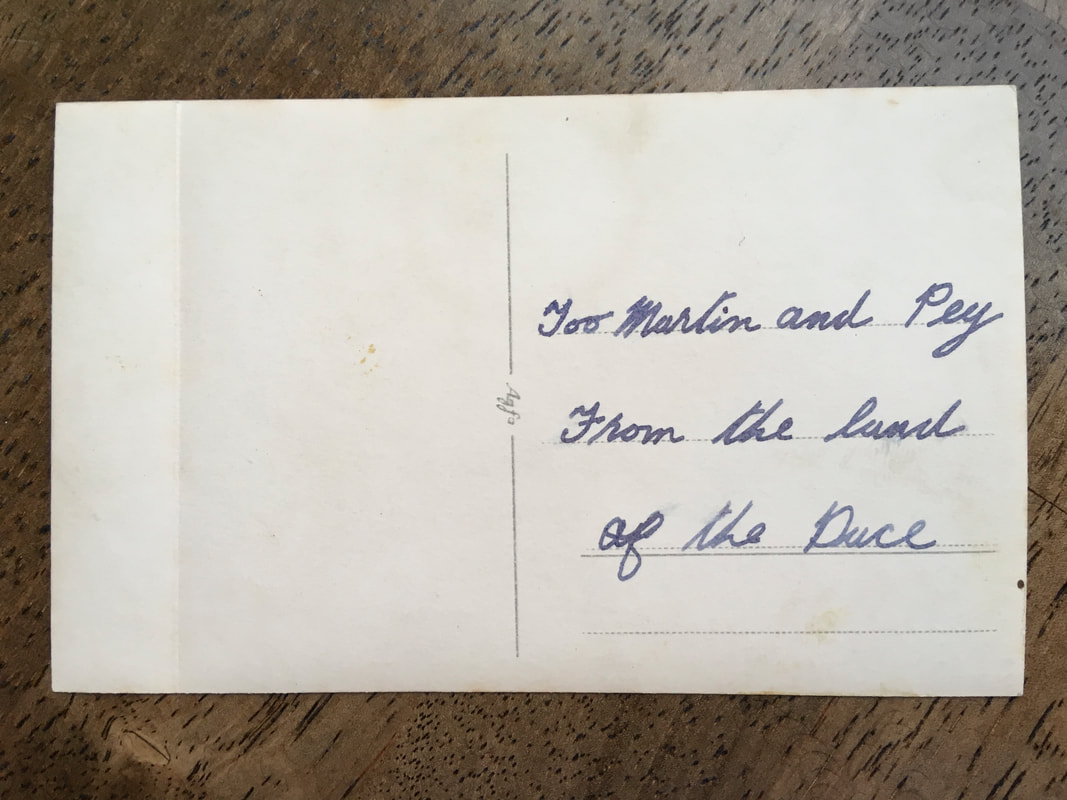 Too Martin and Pey
From the land
of the Duce
Agfa